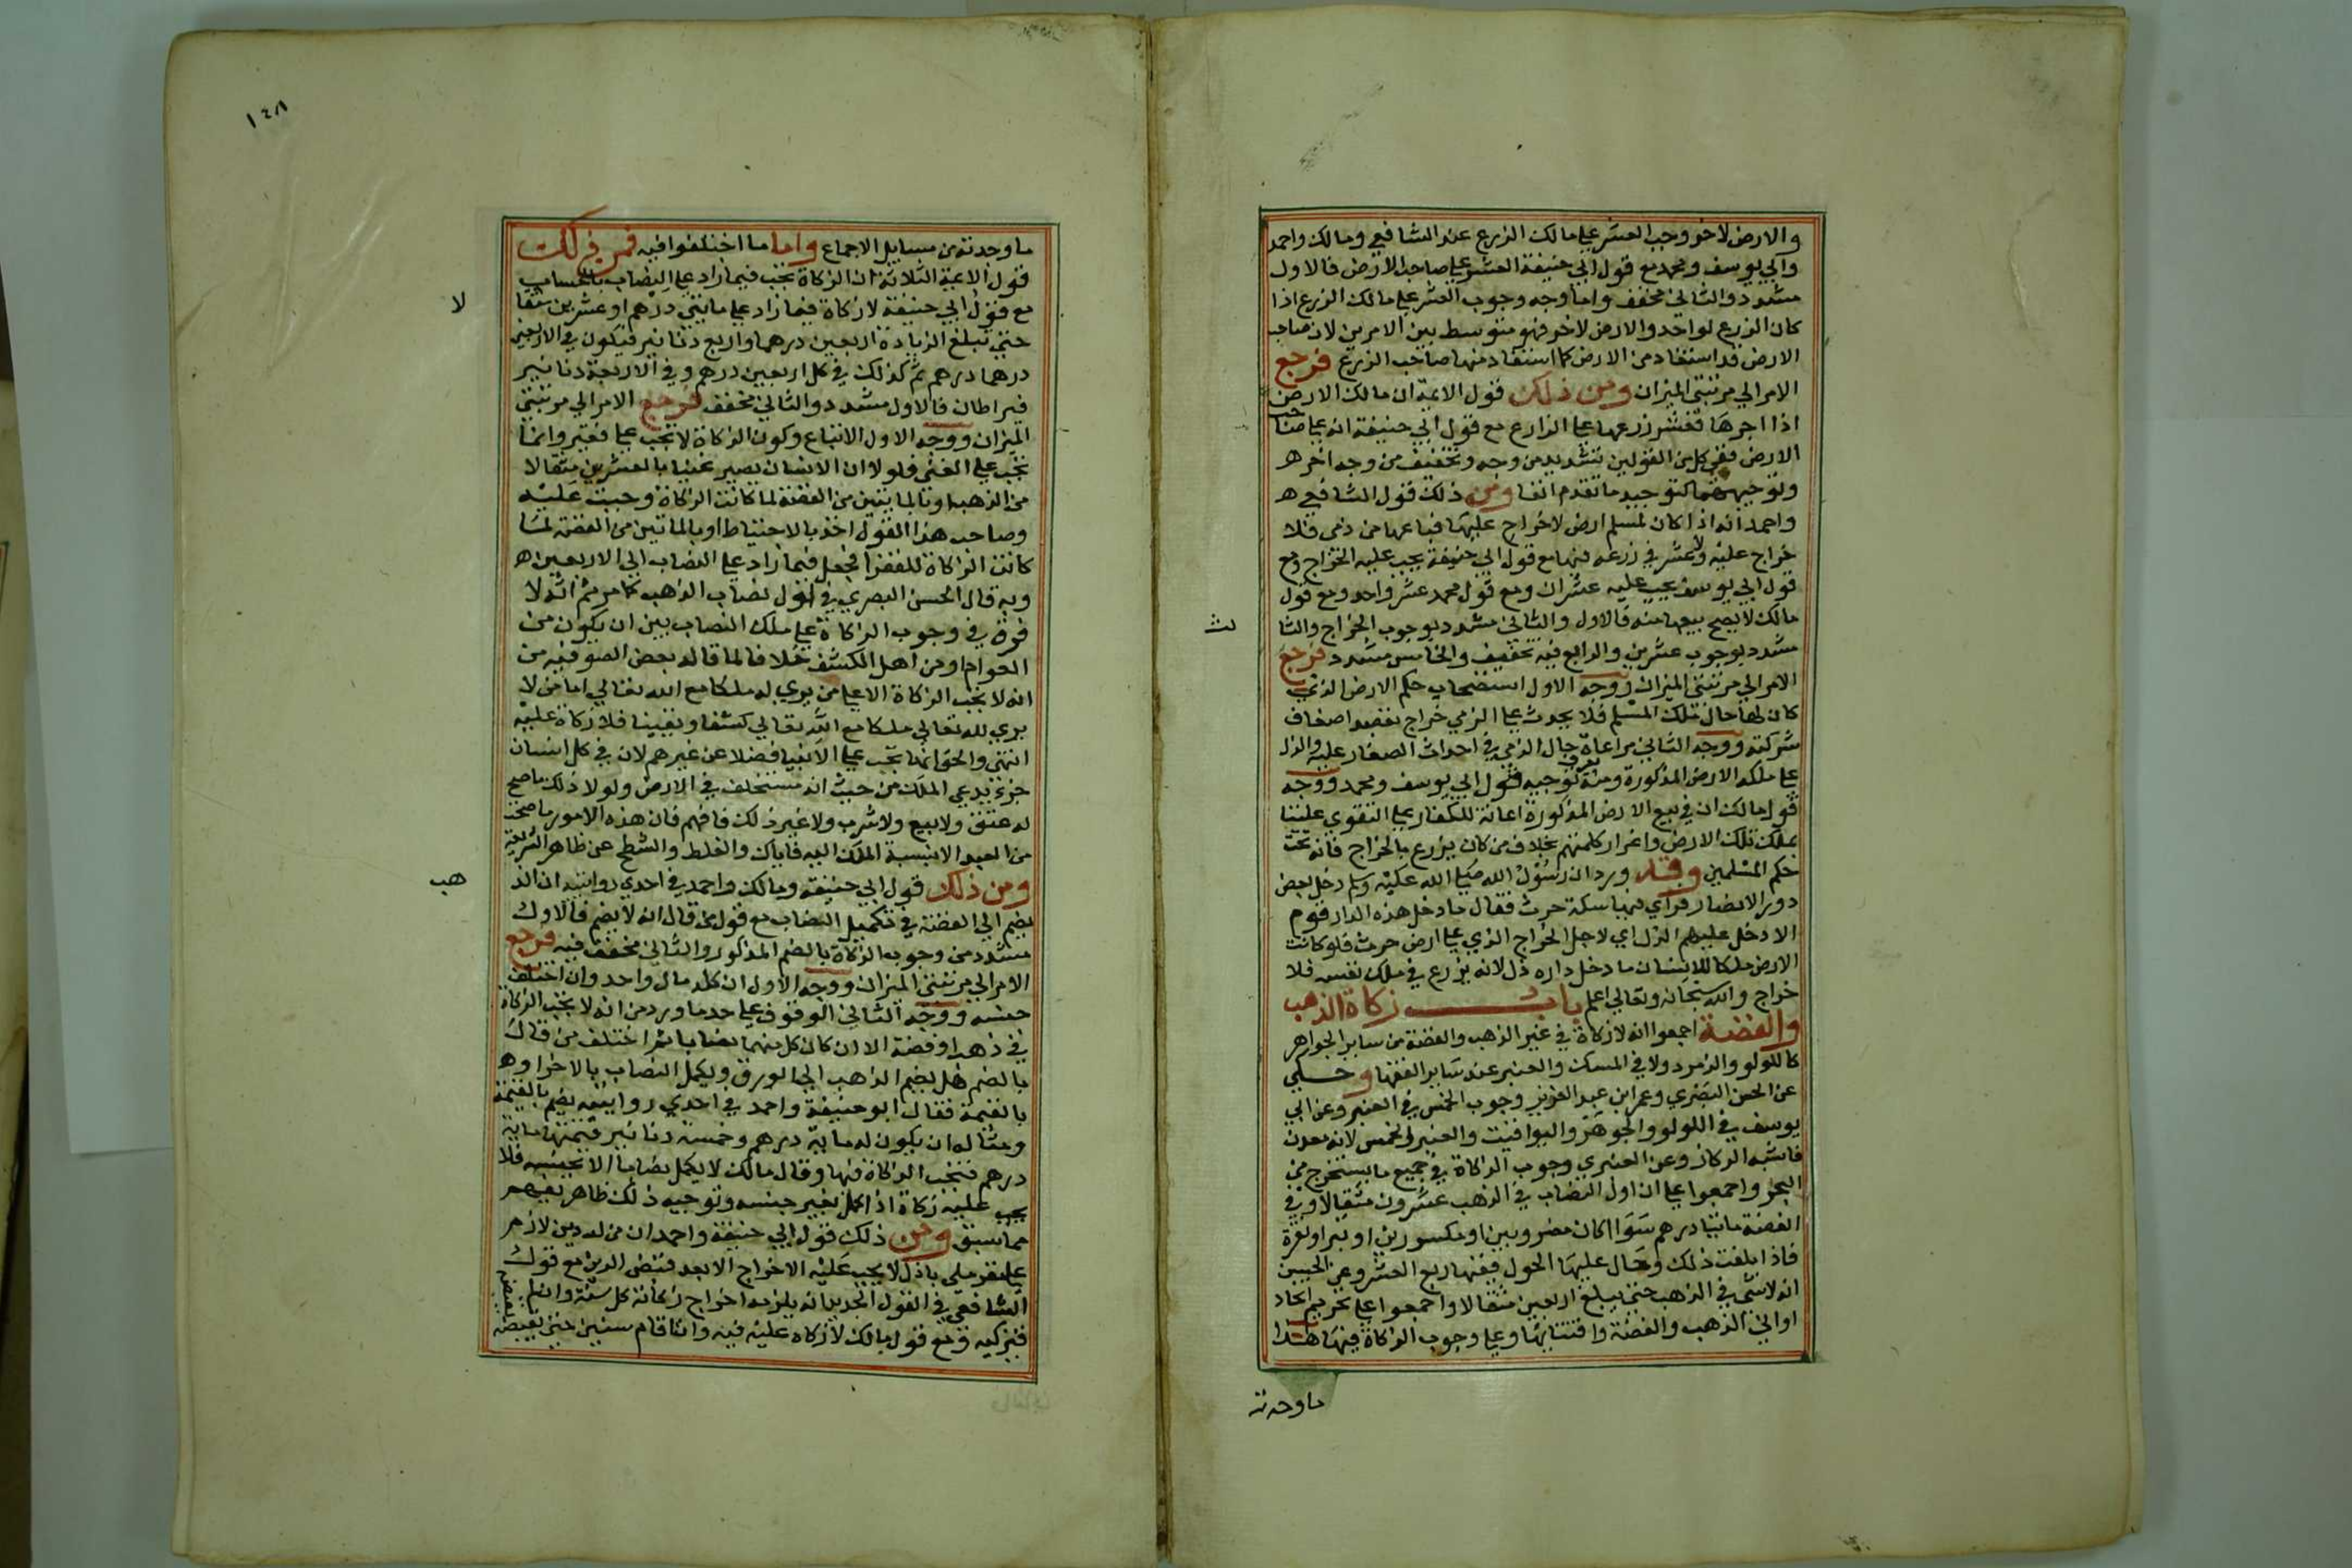 والارض لاخر وجب العشر علي مالك الزرع عند الشافعي ومالك واحمد
وابي يوسف ومحمد مع قول ابي حنيفة العشر علي صاحب الارض فالاول
مشدد والثاني مخفف واما وجه وجوب العشر علي مالك الزرع اذا
كان الزرع لواحد والارض لاخر فهو متوسط بين الامرين لان صاحب
الارض قد استفاد من الارض كما استفاد منها صاحب الزرع فرجع
الامر الي مرتبتي الميزان ومن ذلك قول الايمة ان مالك الارض
اذا اجرها فعشر زرعها علي الزارع مع قول ابي حنيفة انه علي صاحب
الارض ففي كل من القولين تشديد من وجه وتخفيف من وجه اخر هـ
وتوجيههما كتوجيه ما تقدم انفا ومن ذلك قول الشافعي هـ
واحمد انه اذا كان لمسلم ارض لاخراج عليها فباعها من ذمي فلا
خراج عليه ولا عشر في زرعه فيها مع قول ابي حنيفة يجب عليه الخراج ومع
قول ابي يوسف يجب عليه عشران ومع قول محمد عشر واحد ومع قول
مالك لا يصح بيعها منه فالاول والثاني مشدد بوجوب الخراج والثا
لث
مشدد بوجوب عشرين والرابع فيه تخفيف والخامس مشدد فرجع
الامر الي مرتبتي الميزان ووجه الاول استصحاب حكم الارض الذي
كان لها حال ملك المسلم فلا يحدث علي الذمي خراج بقصد اضعاف
شركته ووجه الثاني مراعاة حال الذمي في احداث الصغار عليه والذل
علي ملكه الارض المذكورة ومنه يعرف توجيه قول ابي يوسف ومحمد ووجه
قول مالك ان في بيع الارض المذكورة اعانة للكفار علي التقوي علينا
بملك تلك الارض واعزاز كلمتهم بخلاف من كان يزرع بالخراج فانه تحت
حكم المسلمين وقد ورد ان رسول الله صلي الله عليه وسلم دخل بعض
دور الانصار فراي فيها سكة حرث فقال ما دخل هذه الدار قوم
الا دخل عليهم الذل اي لاجل الخراج الذي علي ارض حرث فلو كانت
الارض ملكا للانسان ما دخل داره ذل لانه يزرع في ملك نفسه فلا
خراج والله سبحانه وتعالي اعلم باب زكاة الذهب
والفضة اجمعوا انه لا زكاة في غير الذهب والفضة من ساير الجواهر
كاللولو والزمرد ولا في المسك والعنبر عند ساير الفقها وحكي
عن الحسن البصري وعمر ابن عبد العزيز وجوب الخمس في العنبر وعن ابي
يوسف في اللولو والجوهر واليواقيت والعنبر الخمس لانه معدن
فاشبه الركاز وعن العنبري وجوب الزكاة في جميع ما يستخرج من
البحر واجمعوا علي ان اول النصاب في الذهب عشرون مثقالا وفي
الفضة مايتا درهم سوا اكان مضروبين او مكسورين او تبرا ونقرة
فاذا بلغت ذلك وحال عليها الحول ففيها ربع العشر وعن الحسن
انه لا شي في الذهب حتي يبلغ اربعين مثقالا واجمعوا علي تحريم اتخاذ
اواني الذهب والفضة واقتنايها وعلي وجوب الزكاة فيها هذا
ما وجدته
١٤٨
ما وجدته من مسايل الاجماع واما ما اختلفوا فيه فمن ذلك
قول الايمة الثلاثة ان الزكاة تجب فيما زاد علي النصاب بالحساب
مع قول ابي حنيفة لا زكاة فيما زاد علي مايتي درهم او عشرين مثقا
لا
حتي تبلغ الزيادة اربعين درهما واربع دنانير فيكون في الاربعين
درهما درهم ثم كذلك في كل اربعين درهم وفي الاربعة دنانير
قيراطان فالاول مشدد والثاني مخفف فرجع الامر الي مرتبتي
الميزان ووجه الاول الاتباع وكون الزكاة لا تجب علي فقير وانما
تجب علي الغني فلولا ان الانسان يصير غنيا بالعشرين مثقالا
من الذهب او بالمايتين من الفضة لما كانت الزكاة وجبت عليه
وصاحب هذا القول اخذ بالاحتياط او بالماتين من الفضة لما
كانت الزكاة للفقرا فجعل فيما زاد علي النصاب الي الاربعين هـ
وبه قال الحسن البصري في اول نصاب الذهب كما مر ثم انه لا
فرق في وجوب الزكاة علي ملك النصاب بين ان يكون من
العوام او من اهل الكشف خلافا لما قاله بعض الصوفية من
انه لا تجب الزكاة الا علي من يري له ملكا مع الله تعالي اما من لا
يري لله تعالي ملكا مع الله تعالي كشفا ويقينا فلا زكاة عليه
انتهي والحق انها تجب علي الانبيا فضلا عن غيرهم لان في كل انسان
جزء يدعي الملك من حيث انه مستخلف في الارض ولولا ذلك ما صح
له عتق ولا بيع ولا شرب ولا غير ذلك فافهم فان هذه الامور ما صحت
من العبد الا بنسبة الملك اليه فاياك والغلط والشطح عن ظاهر الشريعة
ومن ذلك قول ابي حنيفة ومالك واحمد في احدي روايتيه ان الذ
هب
يضم الي الفضة في تكميل النصاب مع قول من قال انه لا يضم فالاول
مشدد من وجوب الزكاة بالضم المذكور والثاني مخفف فيه فرجع
الامر الي مرتبتي الميزان ووجه الاول ان كله مال واحد وان اختلف
جنسه ووجه الثاني الوقوف علي حد ما ورد من انه لا تجب الزكاة
في ذهب او فضة الا ان كان كل منهما نصابا ثم اختلف من قال
بالضم هل يضم الذهب الي الورق ويكمل النصاب بالاخر او هـ
بالقيمة فقال ابو حنيفة واحمد في احدي روايتيه يضم بالقيمة
ومثاله ان يكون له ماية درهم وخمسة دنانير قيمتها ماية
درهم فتجب الزكاة فيها وقال مالك لا يكمل نصابا الا بجنسه فلا
يجب عليه زكاة اذا كمل بغير جنسه وتوجيه ذلك ظاهر يفهم
مما سبق ومن ذلك قول ابي حنيفة واحمد ان من له دين لازم
علي مقر ملي باذل لا يجب عليه الاخراج الا بعد قبض الدين مع قول
الشافعي في القول الجديد انه يلزمه اخراج زكاته كل سنة وان لم يقبضه
فيزكيه ومع قول مالك لا زكاه عليه فيه وان اقام سنين حتي يقبضه